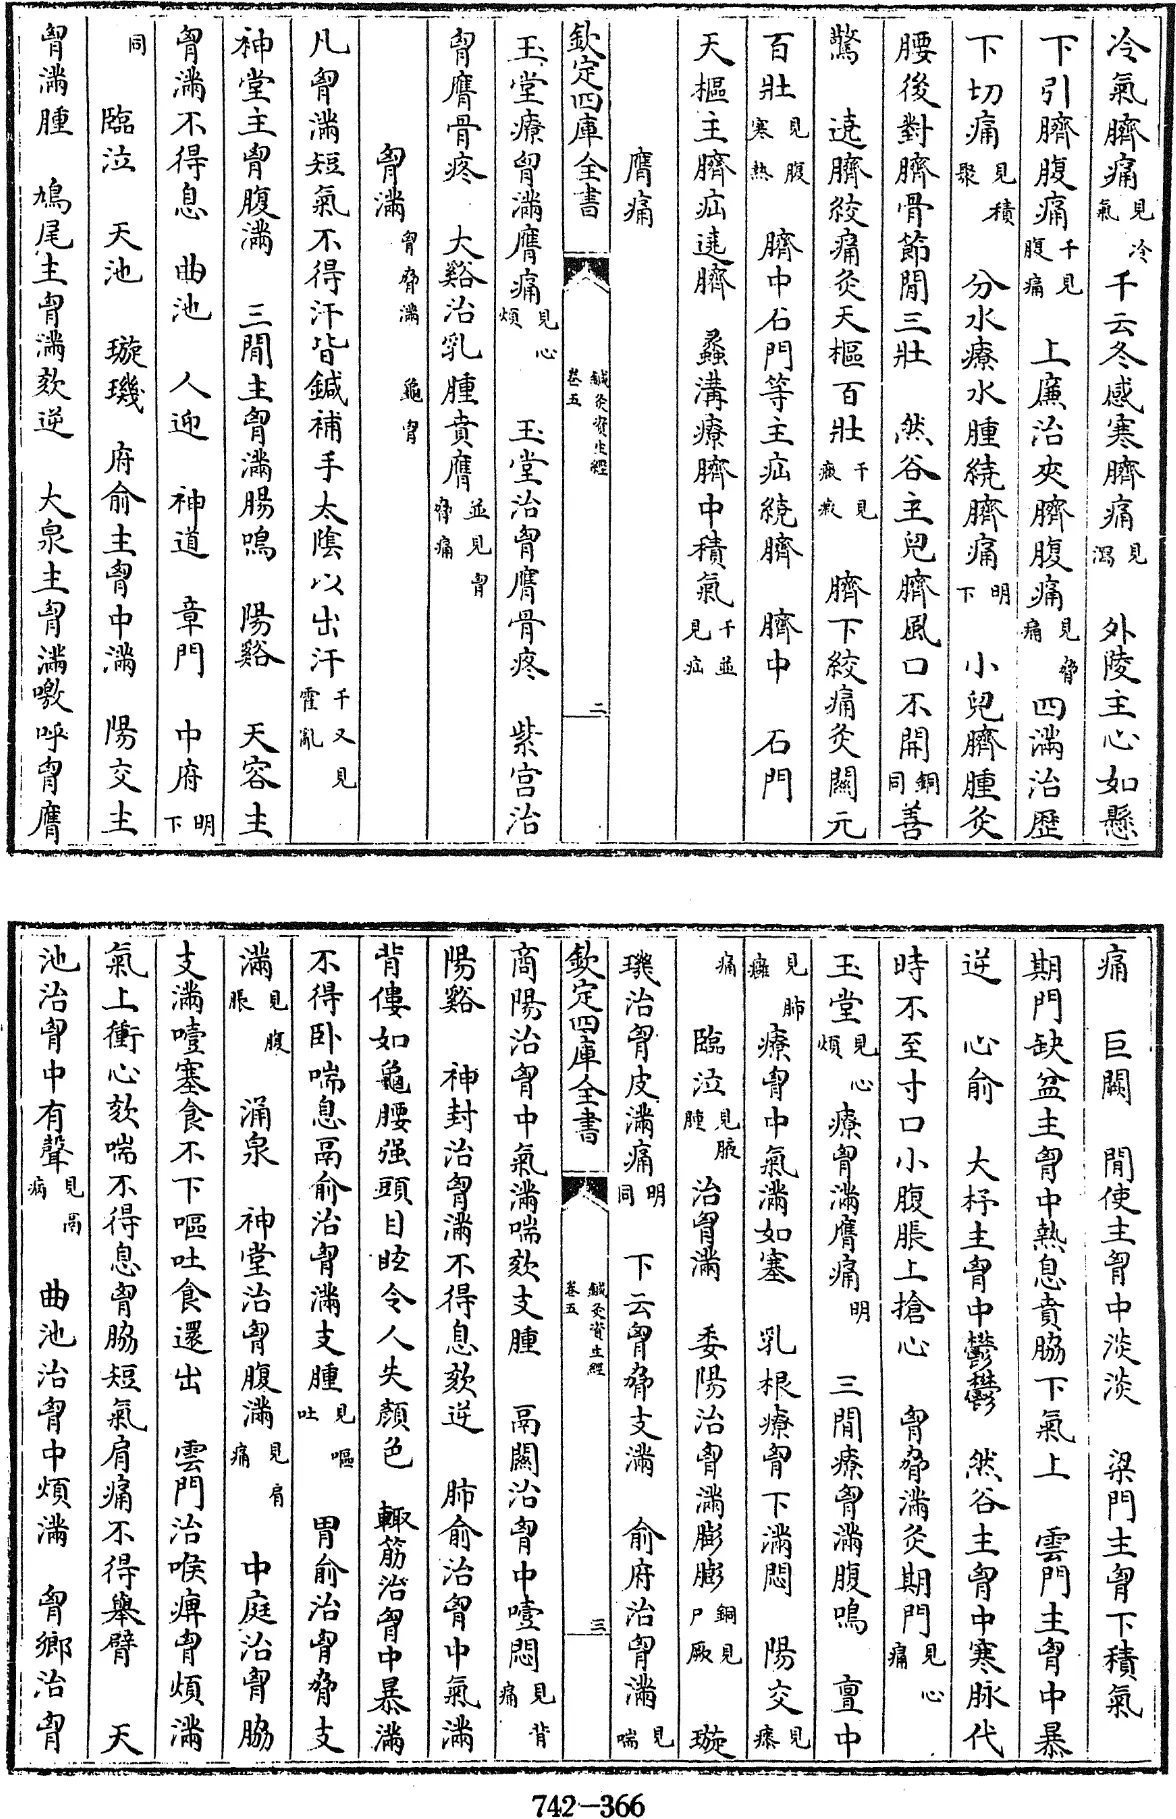 冷氣臍痛見冷氣千云冬感寒臍痛見瀉 外陵主心如懸
下引臍腹痛千見腹痛 上廉治夾臍腹痛見脅痛 四滿治歷
下切痛見積聚 分水療水腫繞臍痛明下 小兒臍腫灸
腰後對臍骨節間三壯 然谷主兒臍風口不開銅同善
驚 遶臍絞痛灸天樞百壯千見癥瘕 臍下絞痛灸關元
百壯見腹寒熱 臍中石門等主疝繞臍 臍中 石門
天樞主臍疝遶臍 蠡溝療臍中積氣千並見疝
膺痛
欽定四庫全書 鍼灸資生經 卷五 二
玉堂療胷滿膺痛見心煩 玉堂治胷膺骨疼 紫宫治
胷膺骨疼 大谿治乳腫賁膺並見胷脅痛
胷滿胷脅滿 龜胷
凡胷滿短氣不得汗皆鍼補手太陰以出汗千又見霍亂
神堂主胷腹滿 三間主胷滿腸鳴 陽谿 天容主
胷滿不得息 曲池 人迎 神道 章門 中府明下
同 臨泣 天池 璇璣 府俞主胷中滿 陽交主
胷滿腫 鳩尾主胷滿欬逆 大泉主胷滿噭呼胷膺
痛 巨闕 間使主胷中淡淡 梁門主胷下積氣
期門缺盆主胷中熱息賁脇下氣上 雲門主胷中暴
逆 心俞 大杼主胷中鬱鬱 然谷主胷中寒脉代
時不至寸口小腹脹上搶心 胷脅滿灸期門見心痛
玉堂見心煩療胷滿膺痛明 三間療胷滿腹鳴 亶中
見肺癰療胷中氣滿如塞 乳根療胷下滿悶 陽交見瘊
痛 臨泣見腋腫治胷滿 委陽治胷滿膨膨銅見尸厥 璇
璣治胷皮滿痛明同 下云胷脅支滿 俞府治胷滿見喘
欽定四庫全書 鍼灸資生經 卷五 三
商陽治胷中氣滿喘欬支腫 鬲關治胷中噎悶見背痛
陽谿 神封治胷滿不得息欬逆 肺俞治胷中氣滿
背僂如龜腰强頭目眩令人失顏色 輒筋治胷中暴滿
不得卧喘息鬲俞治胷滿支腫見嘔吐 胃俞治胷脅支
滿見腹脹 涌泉 神堂治胷腹滿見肩痛 中庭治胷脇
支滿噎塞食不下嘔吐食還出 雲門治喉痹胷煩滿
氣上衝心欬喘不得息胷脇短氣肩痛不得舉臂 天
池治胷中有聲見鬲病 曲池治胷中煩滿 胷鄉治胷
742-366